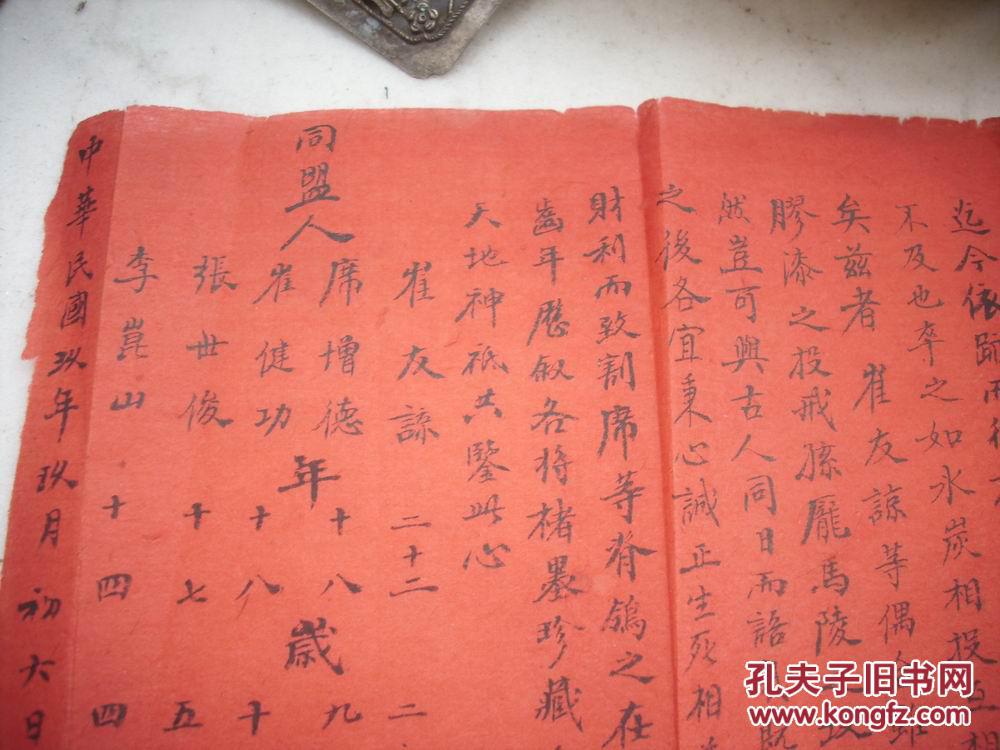 迄今依
不及也卒之如水炭相投互相
矣兹者崔友諒等偶
膠漆之投戒孫龐馬陵之
然豈可與古人同日而語
之後各宜秉心誠正生死相
財利而致割席等脊鴒之在
齒年歷叙各將楮墨珍藏
天地神祗共鑒此心
崔友諒二十二 二
同盟人席增德年十八歲九
崔健功十八十
張世俊十七五
李崑山十四四
中華民國玖年玖月初六日
孔夫子旧书网
www.kongfz.com